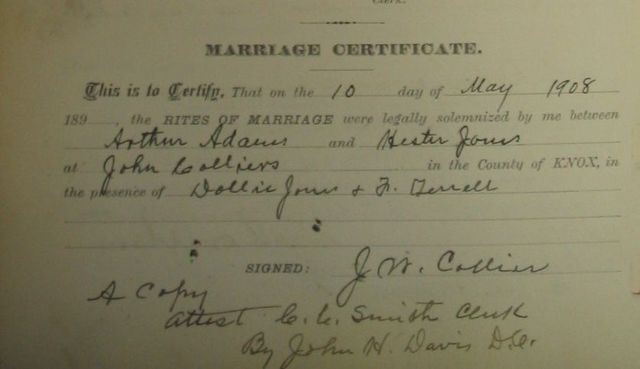 Clerk.
MARRIAGE CERTIFICATE.
This is to Certify, That on the 10 day of May 1908
189 , the RITES OF MARRIAGE were legally solemnized by me between
Arthur Adams and Hester Jones
at John Colliers in the County of KNOX, in
the presence of Dollie Jones & F. Terrell
SIGNED: J. W. Collier
A Copy
attest C. C. Smith Clerk
By John H. Davis D.C.